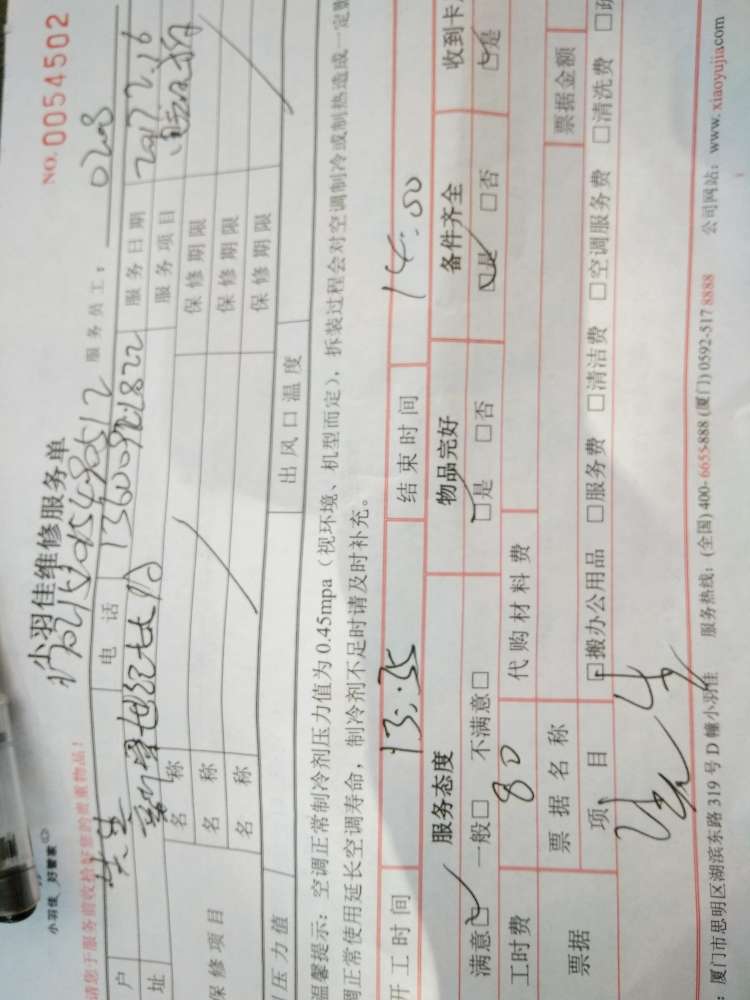 小羽佳 好管家
小羽佳维修服务单
NO.0054502
请您于服务前收检好您的贵重物品!
服务员工: 0203
户
电话 13600921822
服务日期 2017 2.16
址
服务项目
保修项目
名称
保修期限
名称
保修期限
名称
保修期限
压力值
出风口温度
温馨提示: 空调正常制冷剂压力值为 0.45mpa (视环境、机型而定), 拆装过程会对空调制冷或制热造成一定影
调正常使用延长空调寿命, 制冷剂不足时请及时补充。
开工时间 13:35 结束时间 14:00
服务态度 物品完好 备件齐全 收到卡
满意☑ 一般□ 不满意□ ☑是 □否 ☑是 □否 ☑是
工时费 80 代购材料费
票据 票据名称 票据金额
项目 □搬办公用品 □服务费 □清洁费 □空调服务费 □清洗费
: 厦门市思明区湖滨东路 319 号 D 幢小羽佳 服务热线: (全国) 400-6655-888 (厦门) 0592-517 8888 公司网站: www.xiaoyujia.com